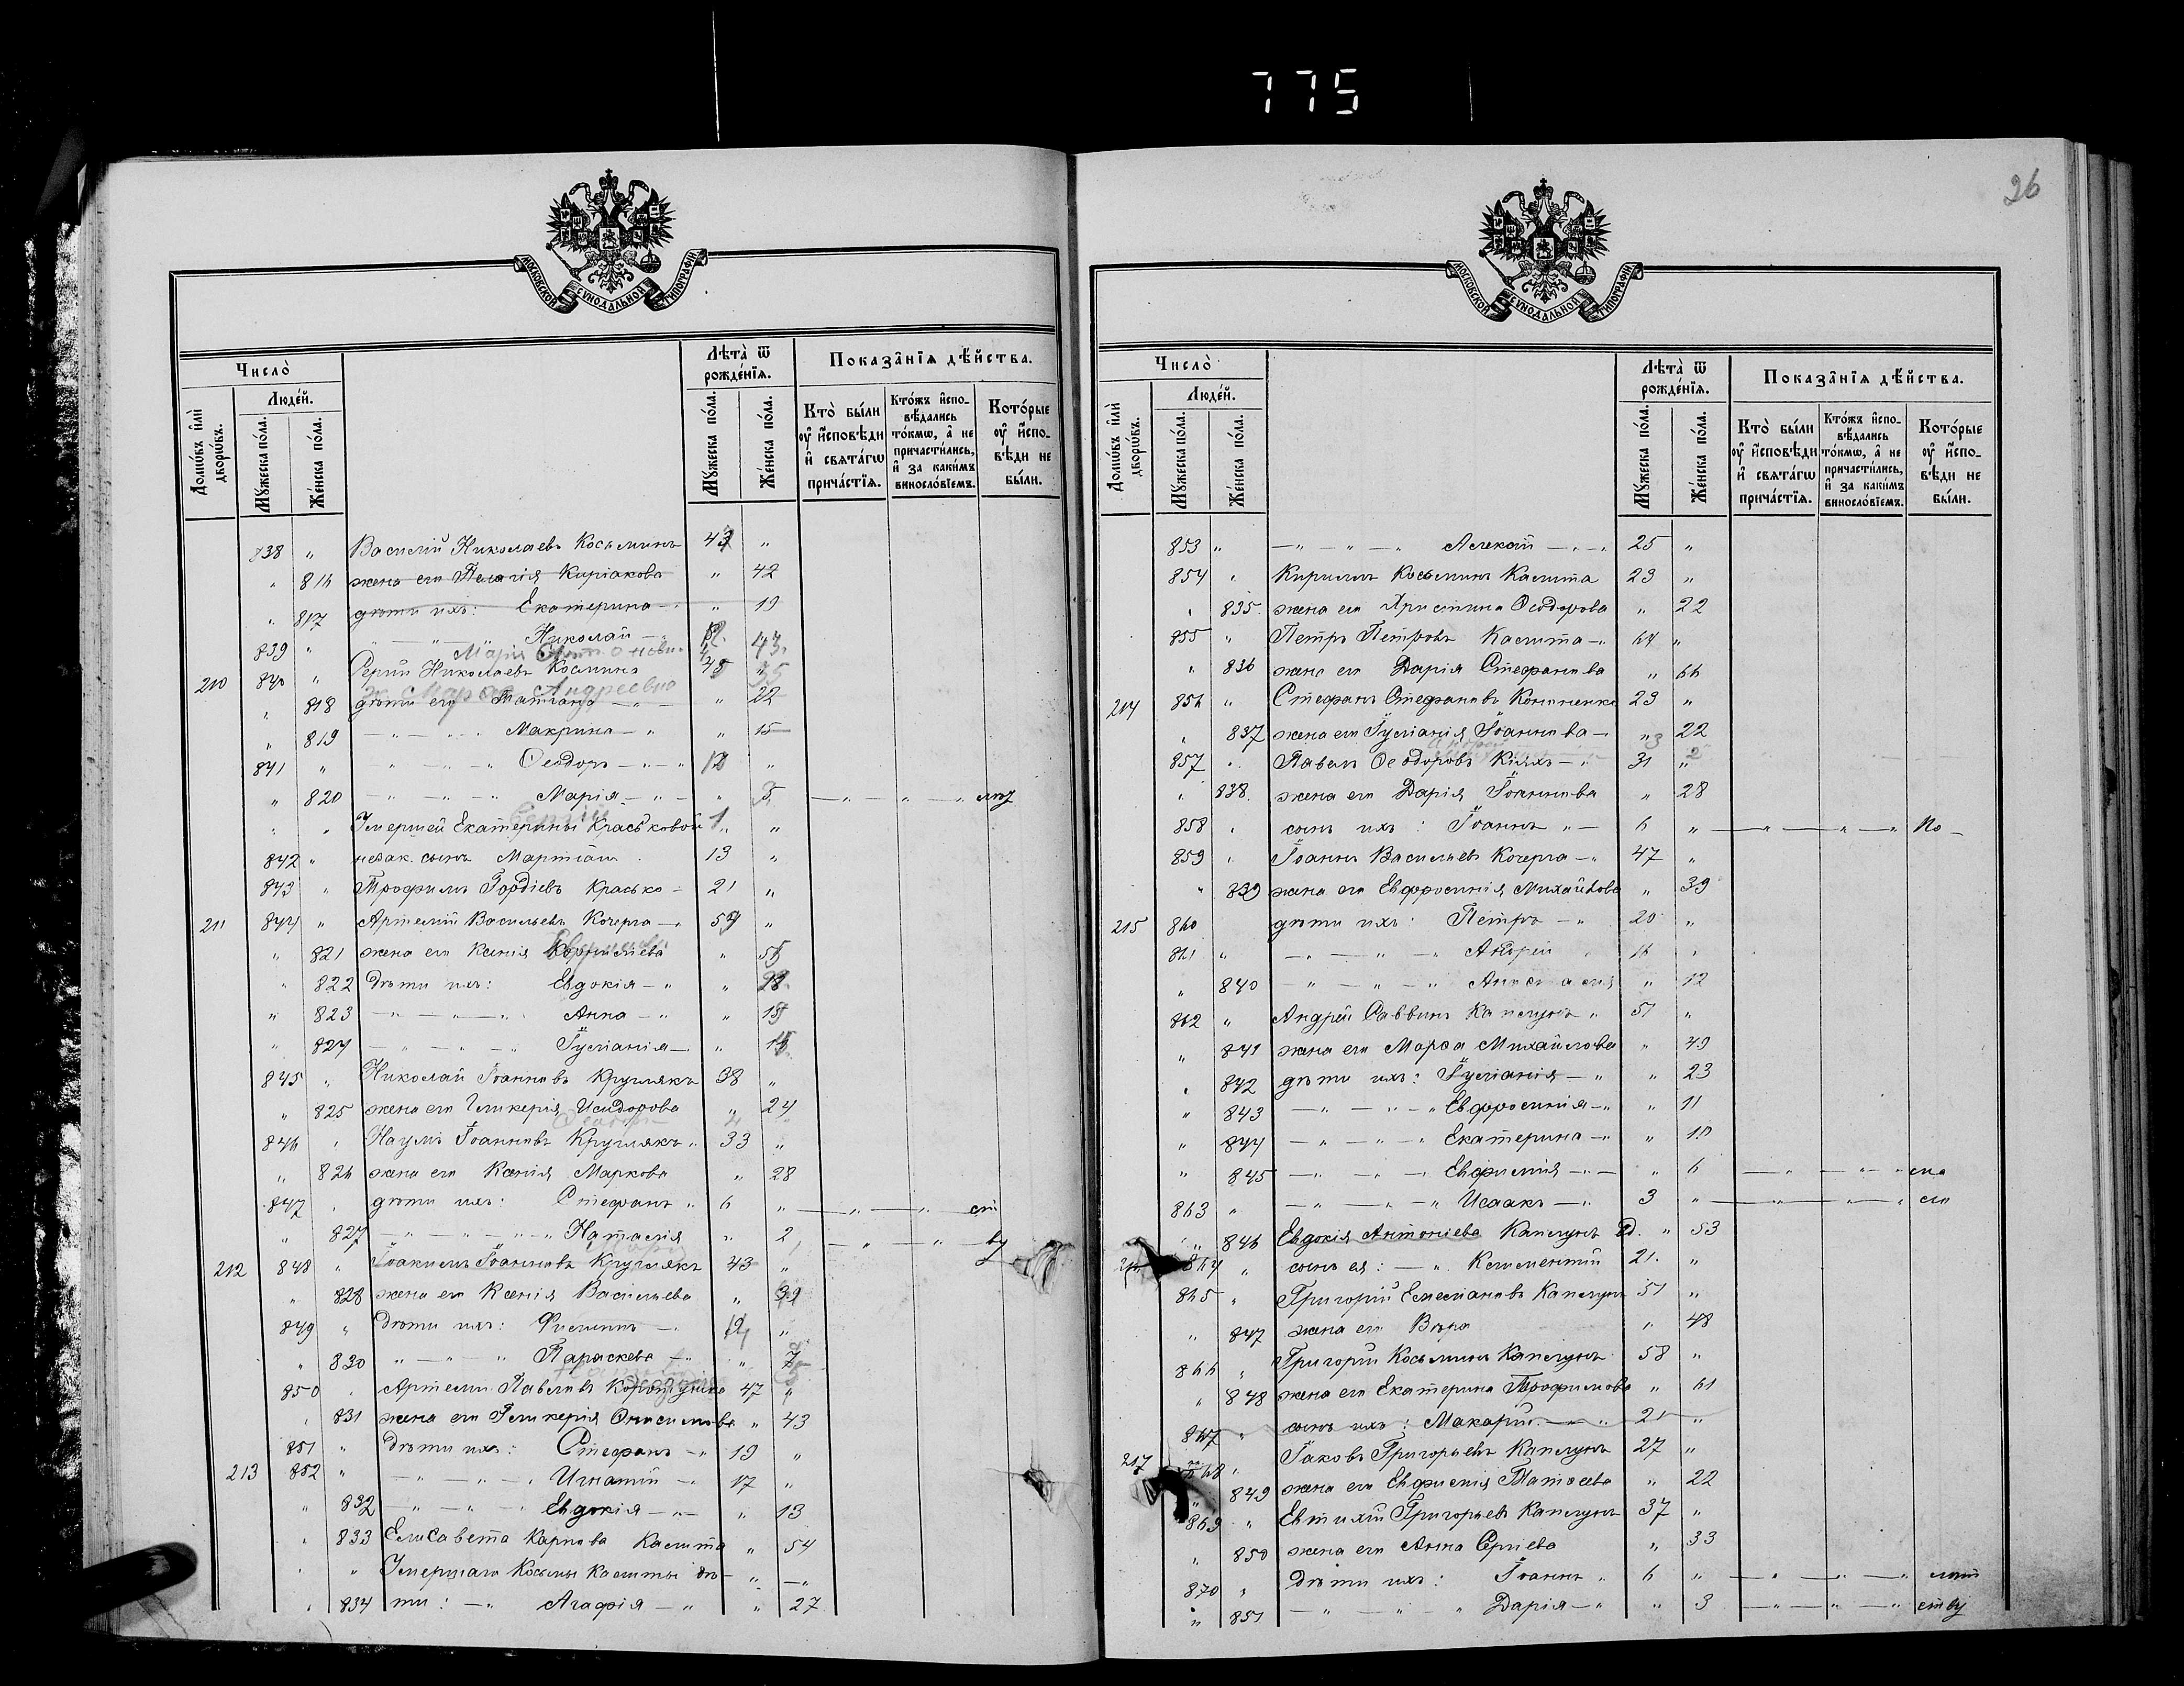 775
26
МОСКОВСКОЙ СѴНОДАЛЬНОЙ ТИПОГРАФІИ
Число̀
Лѣта̀ ѿ рожде́нїѧ.
Показа̑нїѧ дѣ́йства.
Домѡ́въ и҆лѝ дворѡ́въ.
Люде́й.
Мꙋ́жеска по́ла.
Же́нска по́ла.
Мꙋ́жеска по́ла.
Же́нска по́ла.
Кто̀ бы́ли ᲂу҆ и҆́сповѣди и҆ свѧта́гѡ прича́стїѧ.
Кто́жъ и҆спо-вѣ́дались то́кмѡ, а҆ не причасти́лись, и҆ за каки́мъ винослѡ́вїемъ.
Кото́рые ᲂу҆ и҆́спо-вѣди не бы́ли.
838 " Василій Николаевъ Косьминъ 43 "
" 816 жена его Пелагія Киріакова " 42
" 817 дѣти ихъ: Екатерина " 19
839 " Николай
Марія
210 840 " Сергій Николаевъ Косминъ 48
ж. Марѳа Андреевна 35
" 818 дѣти его Татіана " 22
" 819 Макрина " 15
841 " Ѳеодоръ "
" 820 Марія "
" " Умершей Екатерины Краськовой " "
842 " незак. сынъ Мартіанъ 13 "
843 " Трофимъ Гордіевъ Красько 21 "
211 844 " Артемій Васильевъ Кочерга "
" 821 жена его Ксенія Корнилiева "
" 822 Дѣти ихъ: Евдокія "
" 823 Анна "
" 824 Іуліанія "
845 " Николай Іоанновъ Круглякъ 38 "
" 825 жена его Гликерія Исидорова " 24
846 " Наумъ Іоанновъ Круглякъ 33 "
" 826 жена его Ксенія Маркова " 28
847 " дѣти ихъ: Стефанъ 6 "
" 827 Наталія " 2
212 848 " Іоакимъ Іоанновъ Круглякъ 43 "
" 828 жена его Ксенія Васильева "
849 " Дѣти ихъ: Филиппъ "
" 830 Параскева " 7
850 " Артемій Павловъ 47 "
" 831 жена его Гликерія Онисимова " 43
851 " Дѣти ихъ: Стефанъ 19 "
213 852 " Игнатій 17 "
" 832 Евдокія " 13
" 833 Елисавета Карпова Калита " 54
" " Умершаго Косьмы Калиты дѣ-
" 834 ти: Агафія " 27
Число̀
Лѣта̀ ѿ рожде́нїѧ.
Показа̑нїѧ дѣ́йства.
Домѡ́въ и҆лѝ дворѡ́въ.
Люде́й.
Мꙋ́жеска по́ла.
Же́нска по́ла.
Мꙋ́жеска по́ла.
Же́нска по́ла.
Кто̀ бы́ли ᲂу҆ и҆́сповѣди и҆ свѧта́гѡ прича́стїѧ.
Кто́жъ и҆спо-вѣ́дались то́кмѡ, а҆ не причасти́лись, и҆ за каки́мъ винослѡ́вїемъ.
Кото́рые ᲂу҆ и҆́спо-вѣди не бы́ли.
853 " Алексій 25 "
854 " Кириллъ Косьминъ Калита 23 "
" 835 жена его Христина Ѳеодорова " 22
855 " Петръ Петровъ Калита 64 "
" 836 жена его Дарія Стефанова " 66
214 856 " Стефанъ Стефановъ Кононенко 23 "
" 837 жена его Іуліанія Іоаннова " 22
857 " Павелъ Ѳеодоровъ 31 "
" 838 жена его Дарія Іоаннова " 28
858 " сынъ ихъ: Іоаннъ 6 " По
859 " Іоаннъ Васильевъ Кочерга 47 "
" 839 жена его Евфросинія Михайлова " 39
215 860 дѣти ихъ: Петръ 20 "
861 " Андрей 16 "
" 840 Анастасія " 12
862 " Андрей Саввинъ Каплунъ 51 "
" 841 жена его Марѳа Михайлова " 49
" 842 дѣти ихъ: Іуліанія " 23
" 843 Евфросинія " 11
" 844 Екатерина " 10
" 845 Евфимія " 6
863 " Исаакъ 3 "
" 846 Евдокія Антоніева Каплунъ вд. " 53
864 " сынъ ея: Климентій 21 "
865 " Григорій Емеліановъ Каплунъ 51 "
" 847 жена его Вѣра " 48
866 " Григорій Косьминъ Каплунъ 58 "
" 848 жена его Екатерина Трофимова " 61
867 " сынъ ихъ: Макарій 21 "
217 868 " Іаковъ Григорьевъ Каплунъ 27 "
" 849 жена его Евфимія Матѳеева " 22
869 " Евтихій Григорьевъ Каплунъ 37 "
" 850 жена его Анна Сергіева " 33
870 " Дѣти ихъ: Іоаннъ 6 "
" 851 Дарія " 3 ству